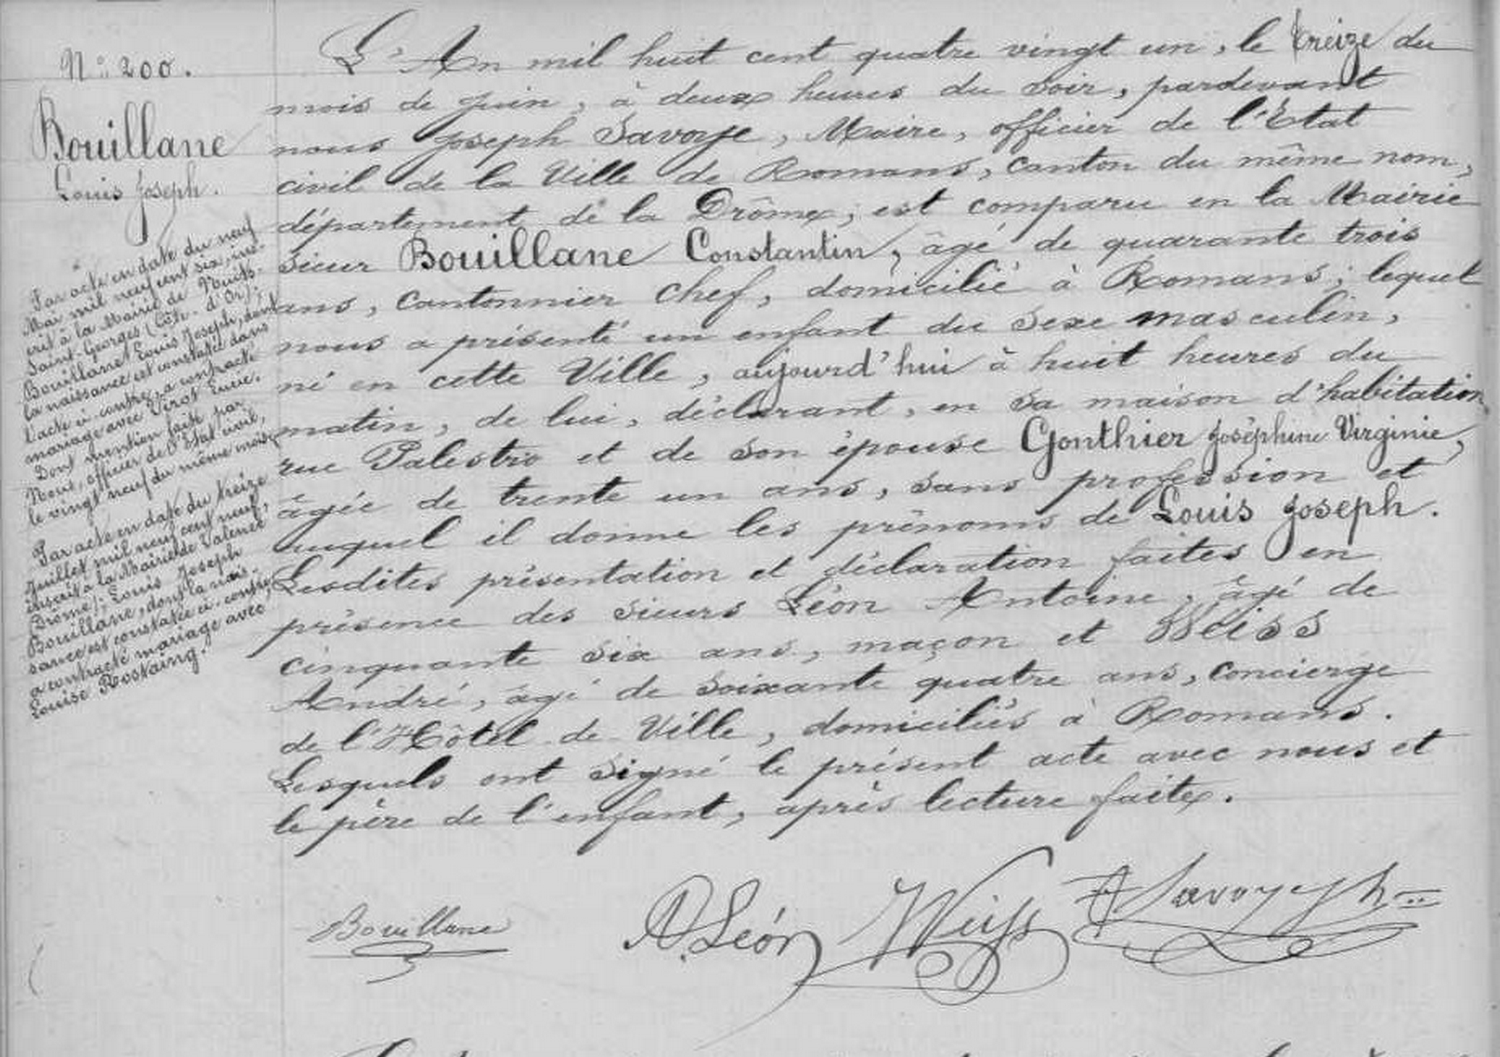 N° 200.
Bouillane
Louis Joseph.
Par acte en date du neuf
Mai mil neuf cent six, ins-
crit à la Mairie de Nuits-
Saint-Georges (Côte-d'Or),
Bouillanet Louis Joseph, dont
la naissance est constatée dans
l'acte ci-contre, a contracté
mariage avec Virot Lucie.
Dont mention faite par
Nous, officier de l'Etat civil,
le vingt neuf du même mois.
Par acte en date du treize
Juillet mil neuf cent neuf,
inscrit à la Mairie de Valence
(Drôme), Louis Joseph
Bouillane, dont la nais-
sance est constatée ci-contre,
a contracté mariage avec
Louise Rostaing.
L'An mil huit cent quatre vingt un, le treize du
mois de Juin, à deux heures du soir, pardevant
nous Joseph Savoye, Maire, officier de l'Etat
civil de la Ville de Romans, canton du même nom,
département de la Drôme, est comparu en la Mairie
sieur Bouillane Constantin, âgé de quarante trois
ans, cantonnier chef, domicilié à Romans; lequel
nous a présenté un enfant du sexe masculin,
né en cette Ville, aujourd'hui à huit heures du
matin, de lui, déclarant, en sa maison d'habitation,
rue Palestro et de son épouse Gonthier Joséphine Virginie,
âgée de trente un ans, sans profession et
auquel il donne les prénoms de Louis Joseph.
Lesdites présentation et déclaration faites en
présence des sieurs Léon Antoine, âgé de
cinquante six ans, maçon et Weiss
André, âgé de soixante quatre ans, concierge
de l'Hôtel de Ville, domiciliés à Romans.
Lesquels ont signé le présent acte avec nous et
le père de l'enfant, après lecture faite.
Bouillane A. Léon Weiss Savoye Jh